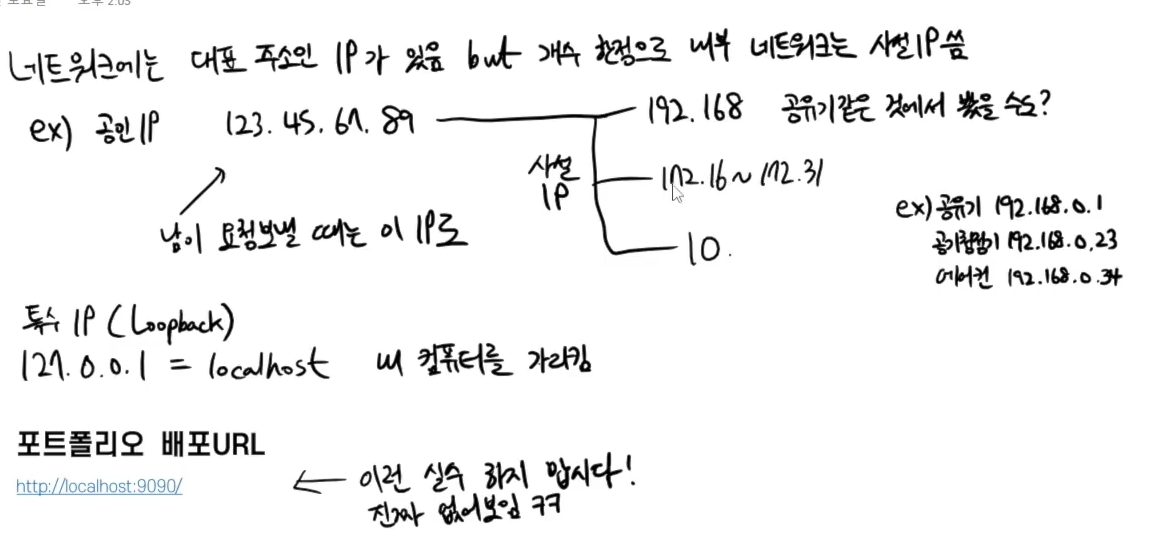 오후 2:05
네트워크에는 대표 주소인 IP가 있음 but 개수 한정으로 내부 네트워크는 사설IP씀
ex) 공인IP 123.45.67.89
192.168 공유기같은 것에서 봤을 수도?
사설 IP
172.16 ~ 172.31
10.
남이 요청보낼 때는 이 IP로
ex) 공유기 192.168.0.1
공기청정기 192.168.0.23
에어컨 192.168.0.34
특수 IP (Loopback)
127.0.0.1 = localhost 내 컴퓨터를 가리킴
포트폴리오 배포URL
http://localhost:9090/
← 이런 실수 하지 맙시다!
진짜 없어보임 ㅋㅋ